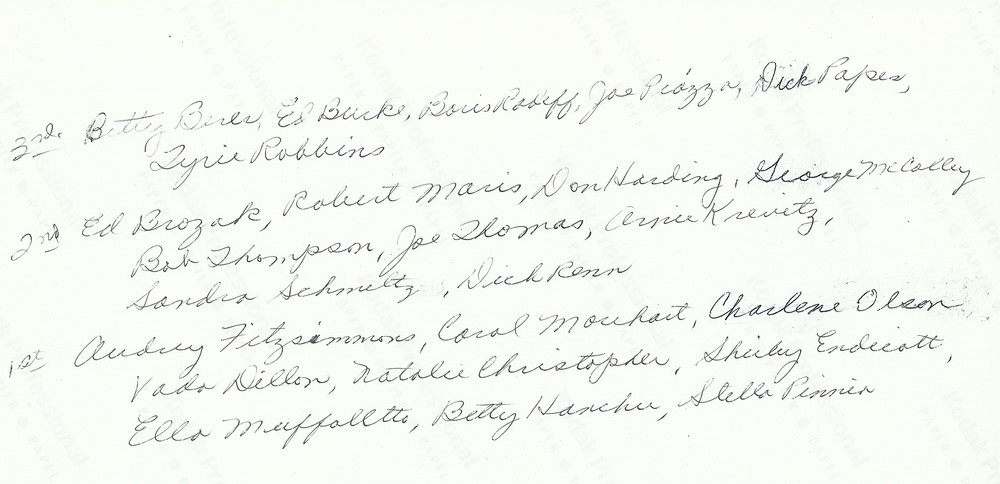 3rd. Betty Beres, Ed Burke, Boris Radeff, Joe Piazza, Dick Papes,
Lyrie Robbins
2nd Ed Brozak, Robert Maris, Don Harding, George McColley
Bob Thompson, Joe Thomas, Arnie Krevitz,
Sandra Schmeltz, Dick Renn
1st Audrey Fitzsimmons, Carol Morehart, Charlene Olson,
Vada Dillon, Natalie Christopher, Shirley Endicott,
Ella Muffoletto, Betty Hancher, Stella